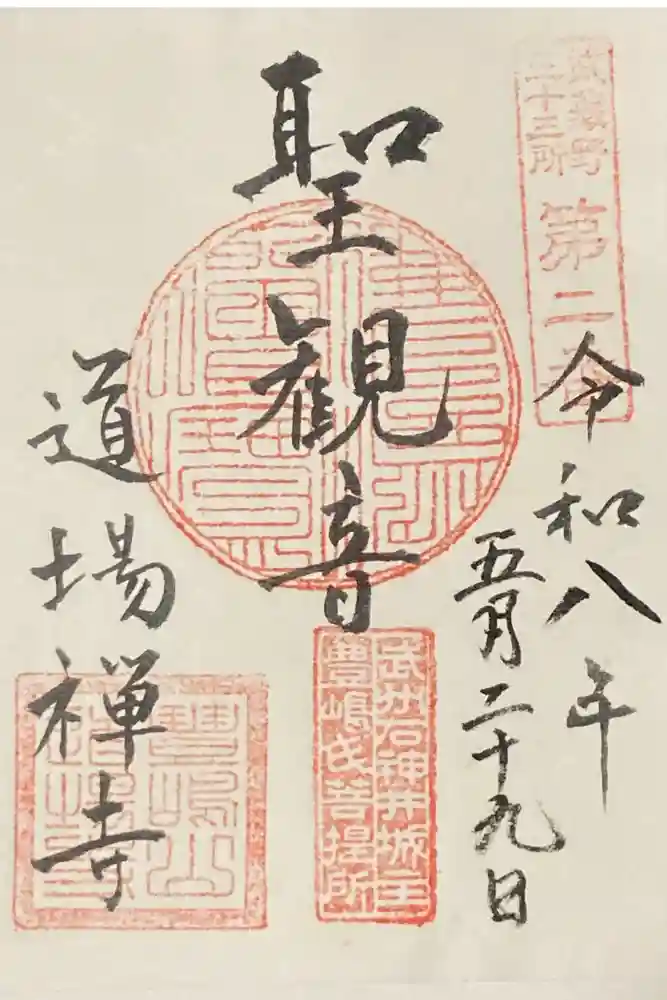 武蔵野
三十三所
第二番
令和八年
五月二十九日
聖観音
武州石神井城主
豊嶋氏菩提所
道場禅寺
豊嶋山
道場寺